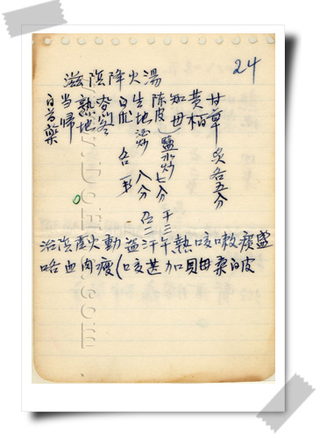 24
滋陰降火湯
白芍藥
当歸
熟地
白朮
生地酒炒 八分
陳皮
知母 鹽水炒 七分
黃柏
甘草 炙各五分
干三
召二
治陰虛火動盜汗午熱咳嗽痰盛
咯血肉瘦(咳甚加貝母桑白皮